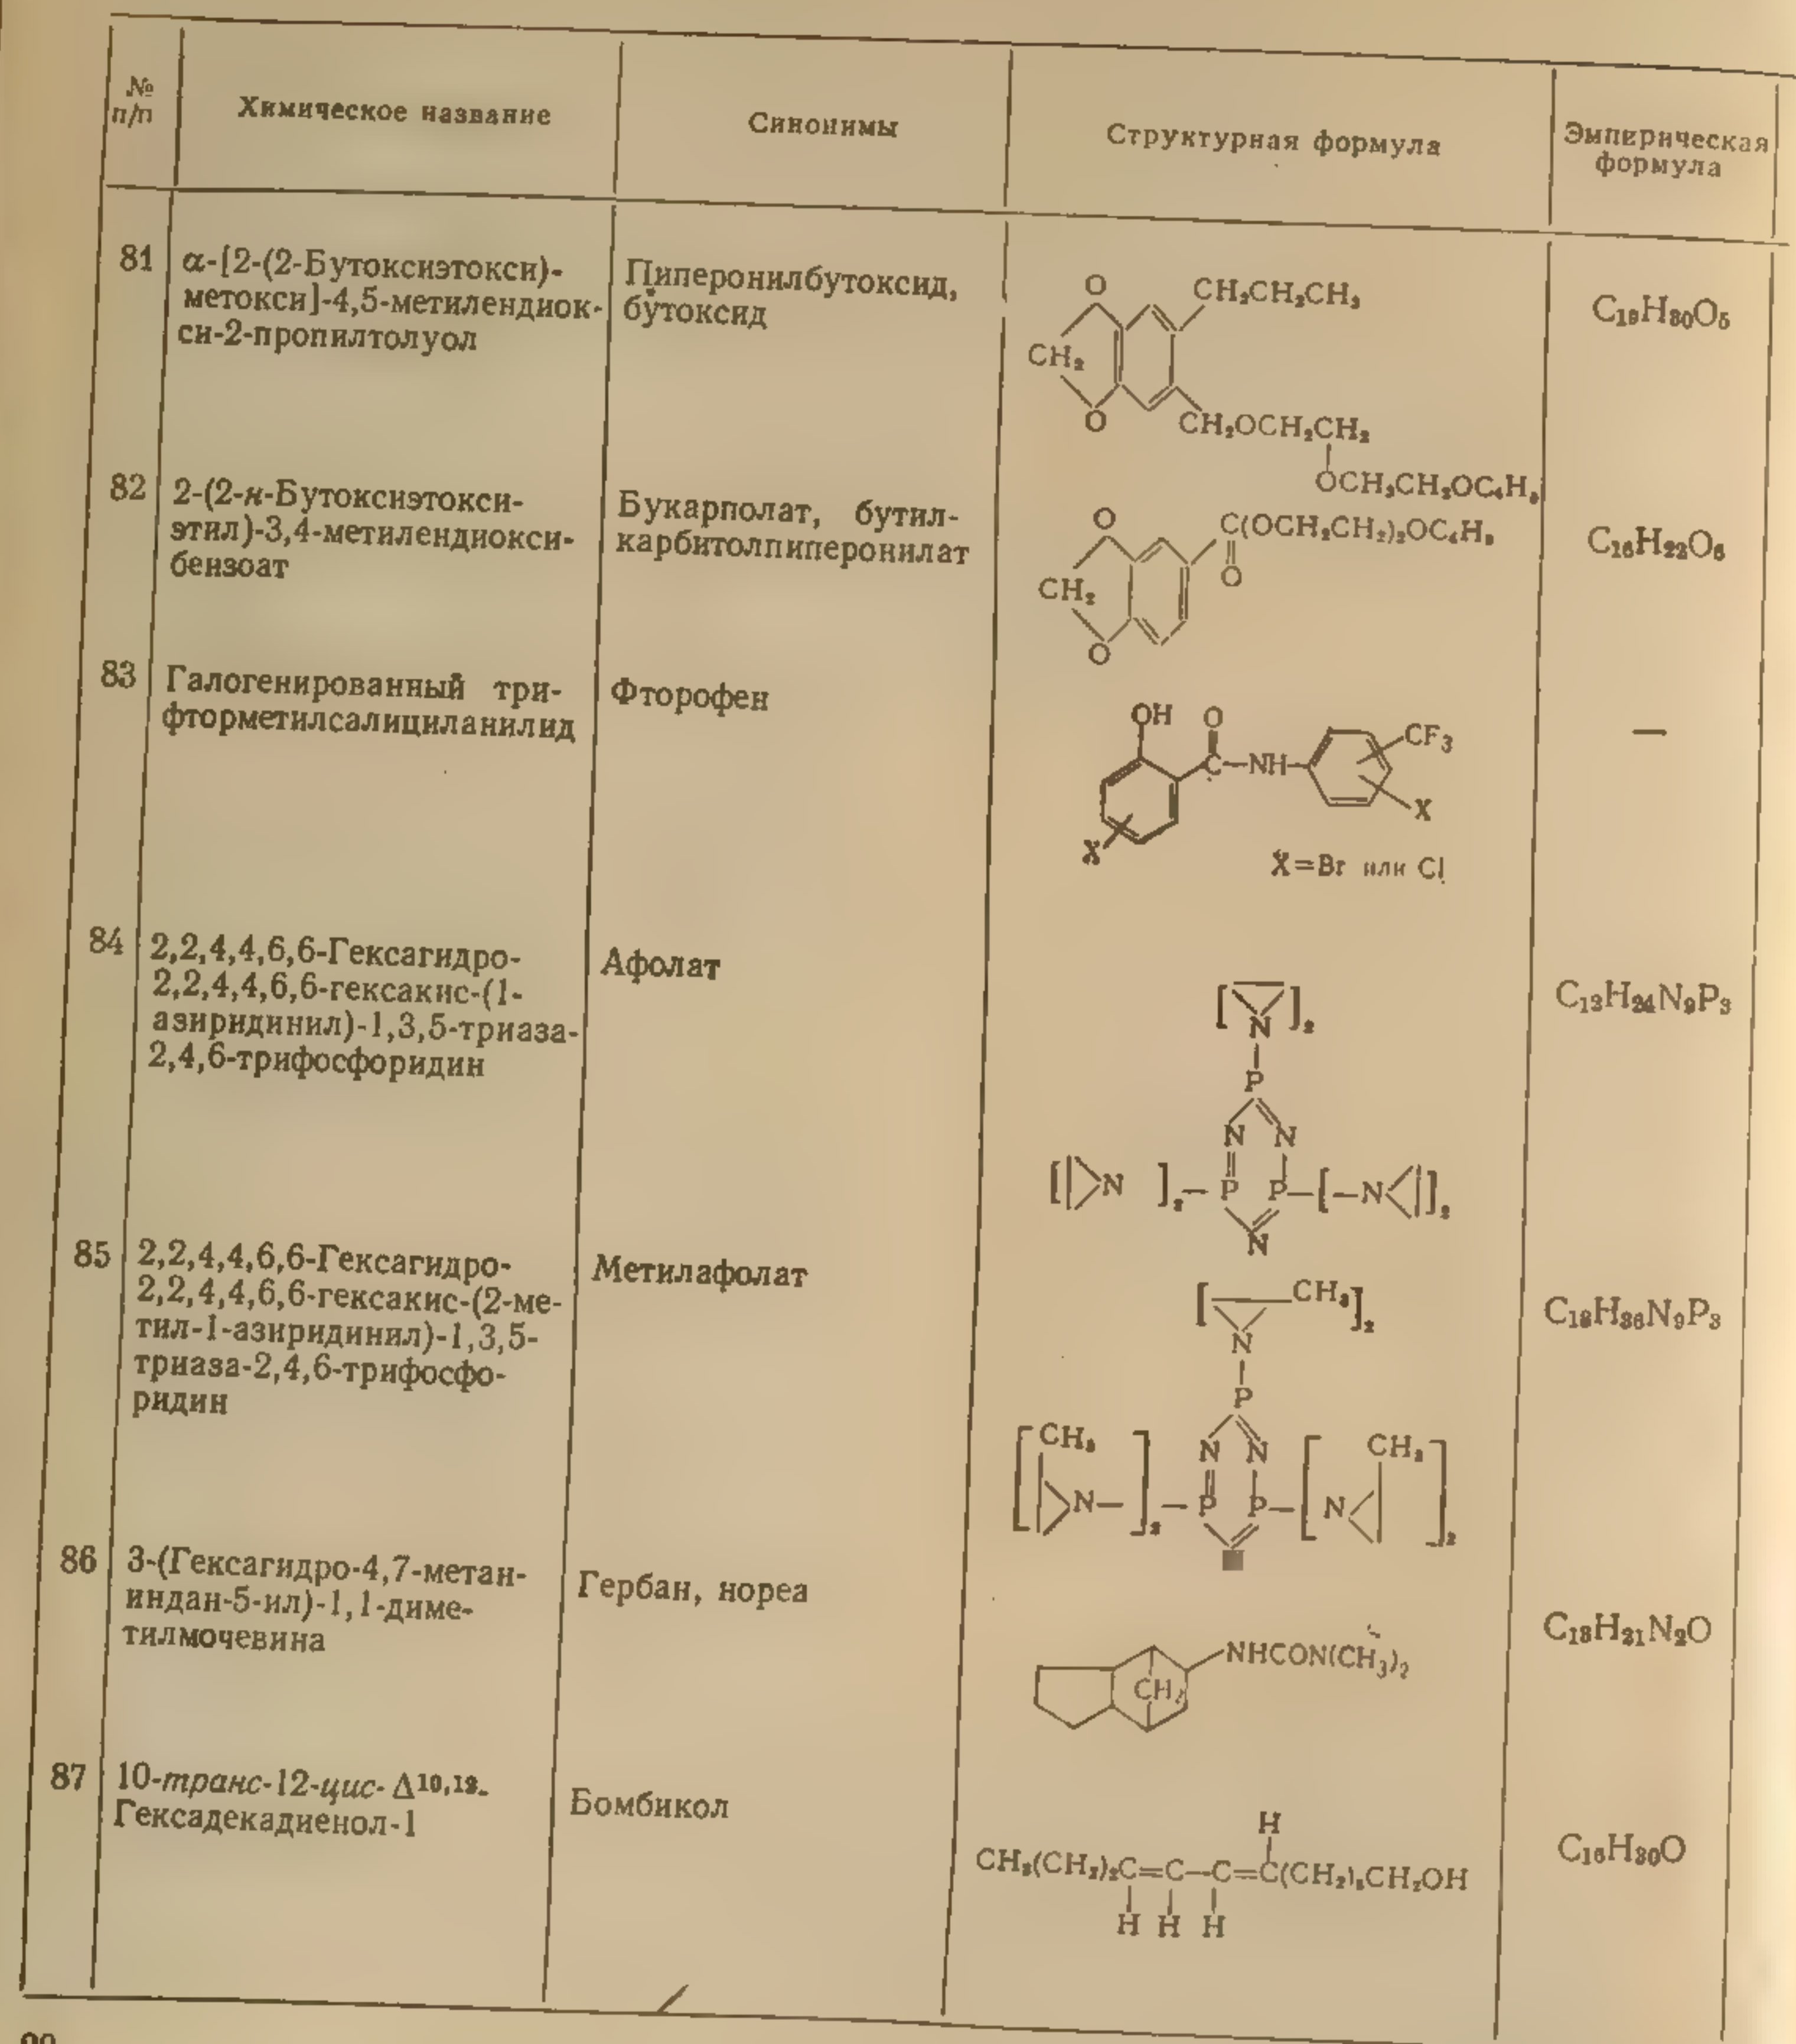 №
п/п
Химическое название
Синонимы
Структурная формула
Эмпирическая
формула
81
α-[2-(2-Бутоксиэтокси)-
метокси]-4,5-метилендиок-
си-2-пропилтолуол
Пиперонилбутоксид,
бутоксид
O
CH₂CH₂CH₃
CH₂
O
CH₂OCH₂CH₂
OCH₂CH₂OC₄H₉
C₁₉H₃₀O₅
82
2-(2-н-Бутоксиэтокси-
этил)-3,4-метилендиокси-
бензоат
Букарполат, бутил-
карбитолпиперонилат
O
C(OCH₂CH₂)₂OC₄H₉
O
CH₂
O
C₁₆H₂₂O₆
83
Галогенированный три-
фторметилсалициланилид
Фторофен
OH O
CF₃
C—NH
X
X
X=Br или Cl
—
84
2,2,4,4,6,6-Гексагидро-
2,2,4,4,6,6-гексакис-(1-
азиридинил)-1,3,5-триаза-
2,4,6-трифосфоридин
Афолат
[N]₂
P
N N
[N ]₂—P P—[—N]₂
N
C₁₂H₂₄N₉P₃
85
2,2,4,4,6,6-Гексагидро-
2,2,4,4,6,6-гексакис-(2-ме-
тил-1-азиридинил)-1,3,5-
триаза-2,4,6-трифосфо-
ридин
Метилафолат
[CH₃]₂
N
P
CH₃ N N CH₃
[N—]₂—P P—[N]₂
C₁₈H₃₆N₉P₃
86
3-(Гексагидро-4,7-метан-
индан-5-ил)-1,1-диме-
тилмочевина
Гербан, нореа
NHCON(CH₃)₂
CH₂
C₁₃H₂₁N₂O
87
10-транс-12-цис- Δ¹⁰,¹²-
Гексадекадиенол-1
Бомбикол
H
CH₃(CH₂)₂C=C—C=C(CH₂)₈CH₂OH
H H H
C₁₆H₃₀O